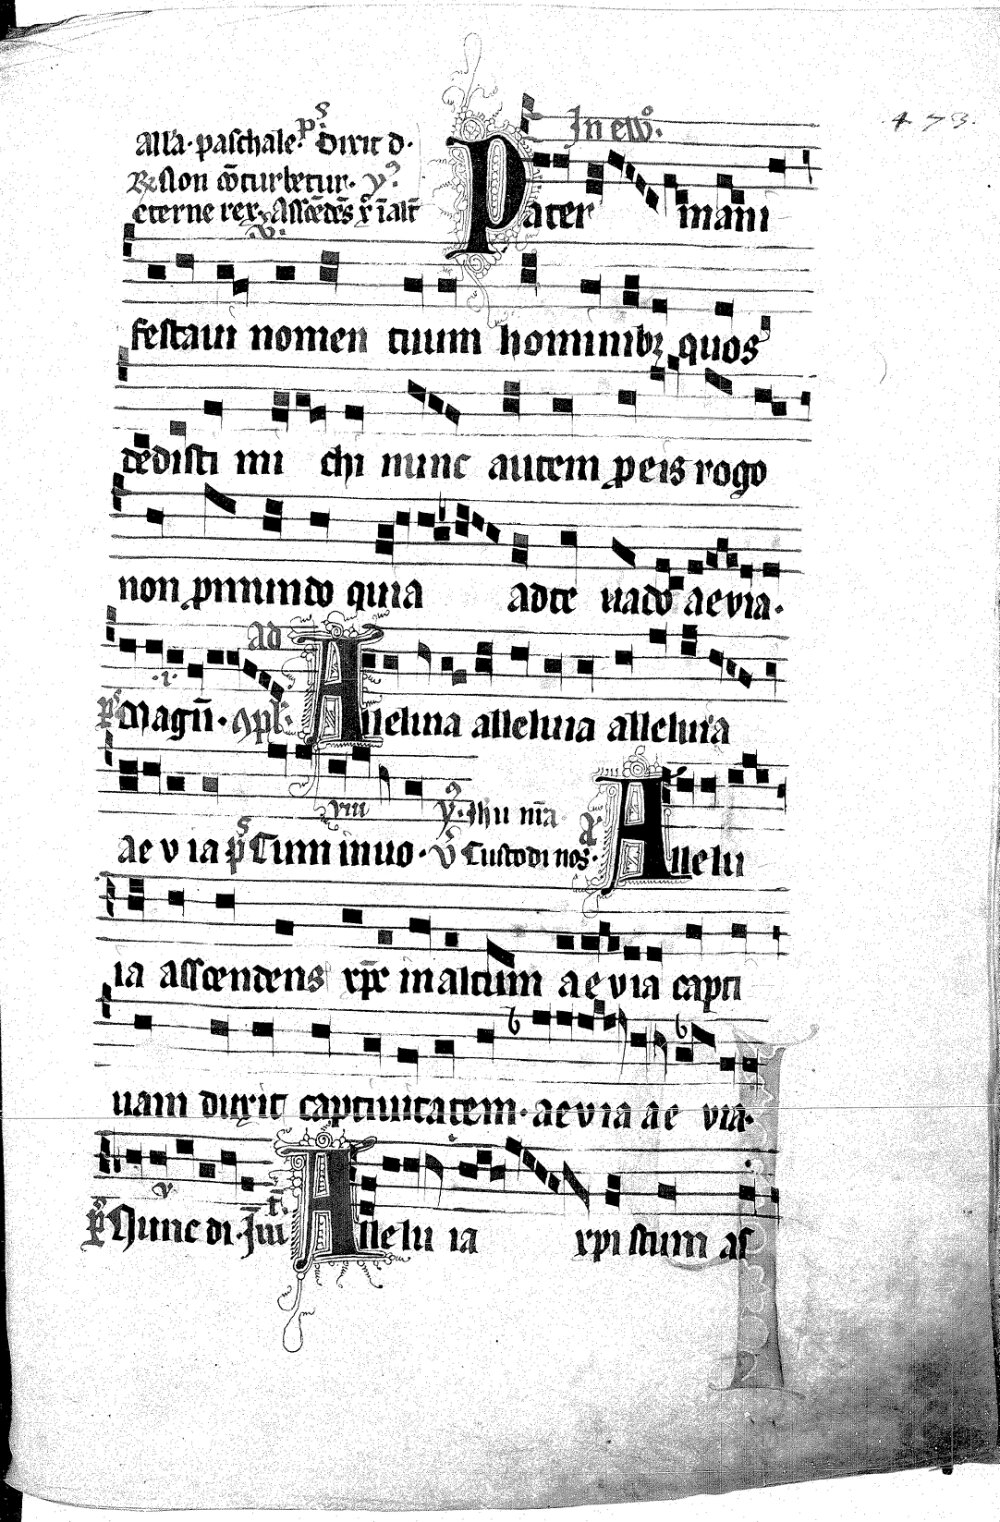 473.
In eŵ.
All'a. paschale. pˢ. Dixit d.
R. Non cōturbetur. V.
eterne rex. V. Ascēdēs xp̄ī ī alt̄
Pater mani
festaui nomen tuum hominibꝫ quos
dedisti mi chi nunc autem ꝓ eis rogo
non ꝓ mundo quia ad te uado aevia.
ad
pˢ Magn̄. Cꝯpl. Alleluia alleluia alleluia
viii V. Ihu nr̄a
aevia pˢ Cum inuo. V. Custodi nos. Allelu
ia ascendens xp̄c in altum aevia capti
uam duxit captiuitatem. aevia ae via.
pˢ Nunc di. Inuit̄. Allelu ia xpistum as